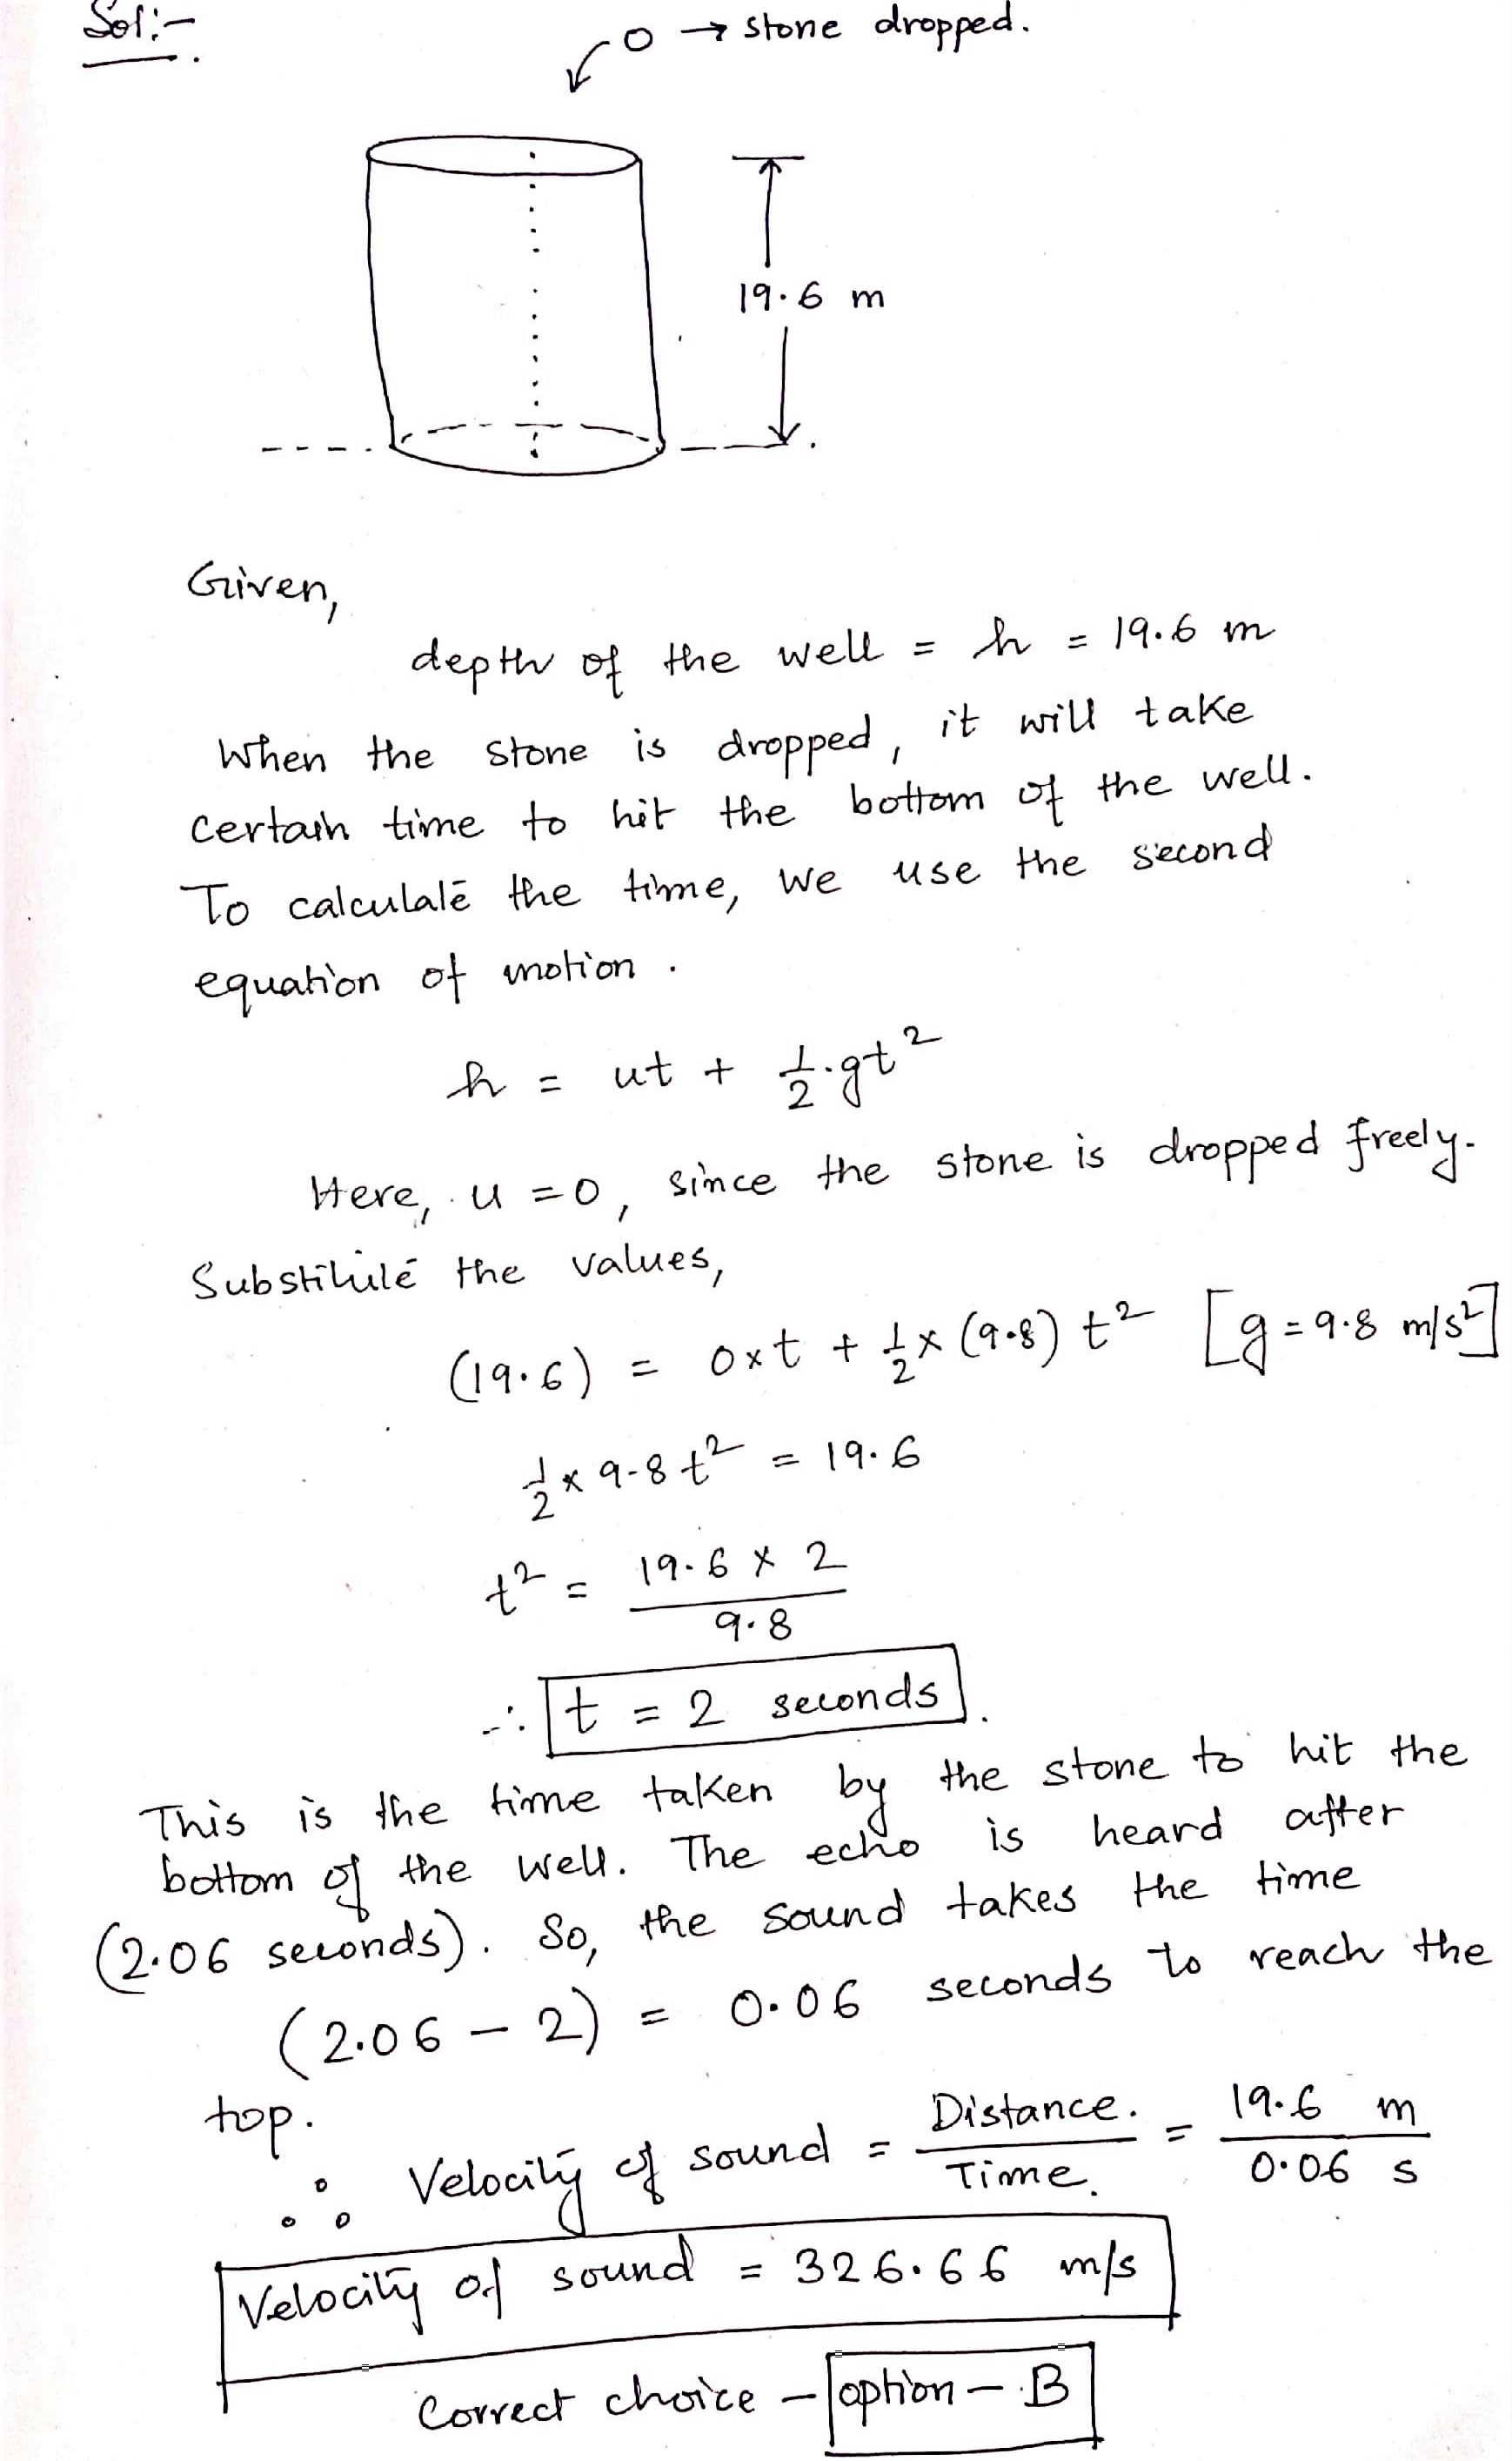 Sol:-
O → stone dropped.
19.6 m
Given,
depth of the well = h = 19.6 m
When the stone is dropped, it will take
certain time to hit the bottom of the well.
To calculate the time, we use the second
equation of motion.
h = ut + 1/2 · gt²
Here, u = 0, since the stone is dropped freely.
Substitute the values,
(19.6) = 0×t + 1/2 × (9.8) t² [g = 9.8 m/s²]
1/2 × 9.8 t² = 19.6
t² = 19.6 × 2 / 9.8
∴ t = 2 seconds.
This is the time taken by the stone to hit the
bottom of the well. The echo is heard after
(2.06 seconds). So, the sound takes the time
(2.06 − 2) = 0.06 seconds to reach the
top.
∴ Velocity of sound = Distance. / Time. = 19.6 m / 0.06 s
Velocity of sound = 326.66 m/s
Correct choice - option - B